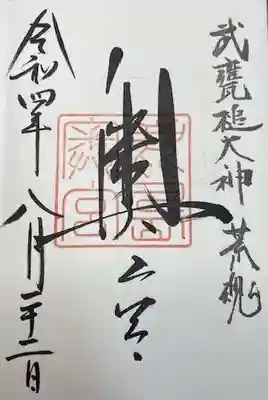 武甕槌大神 荒魂
奥宮
令和四年八月二十二日